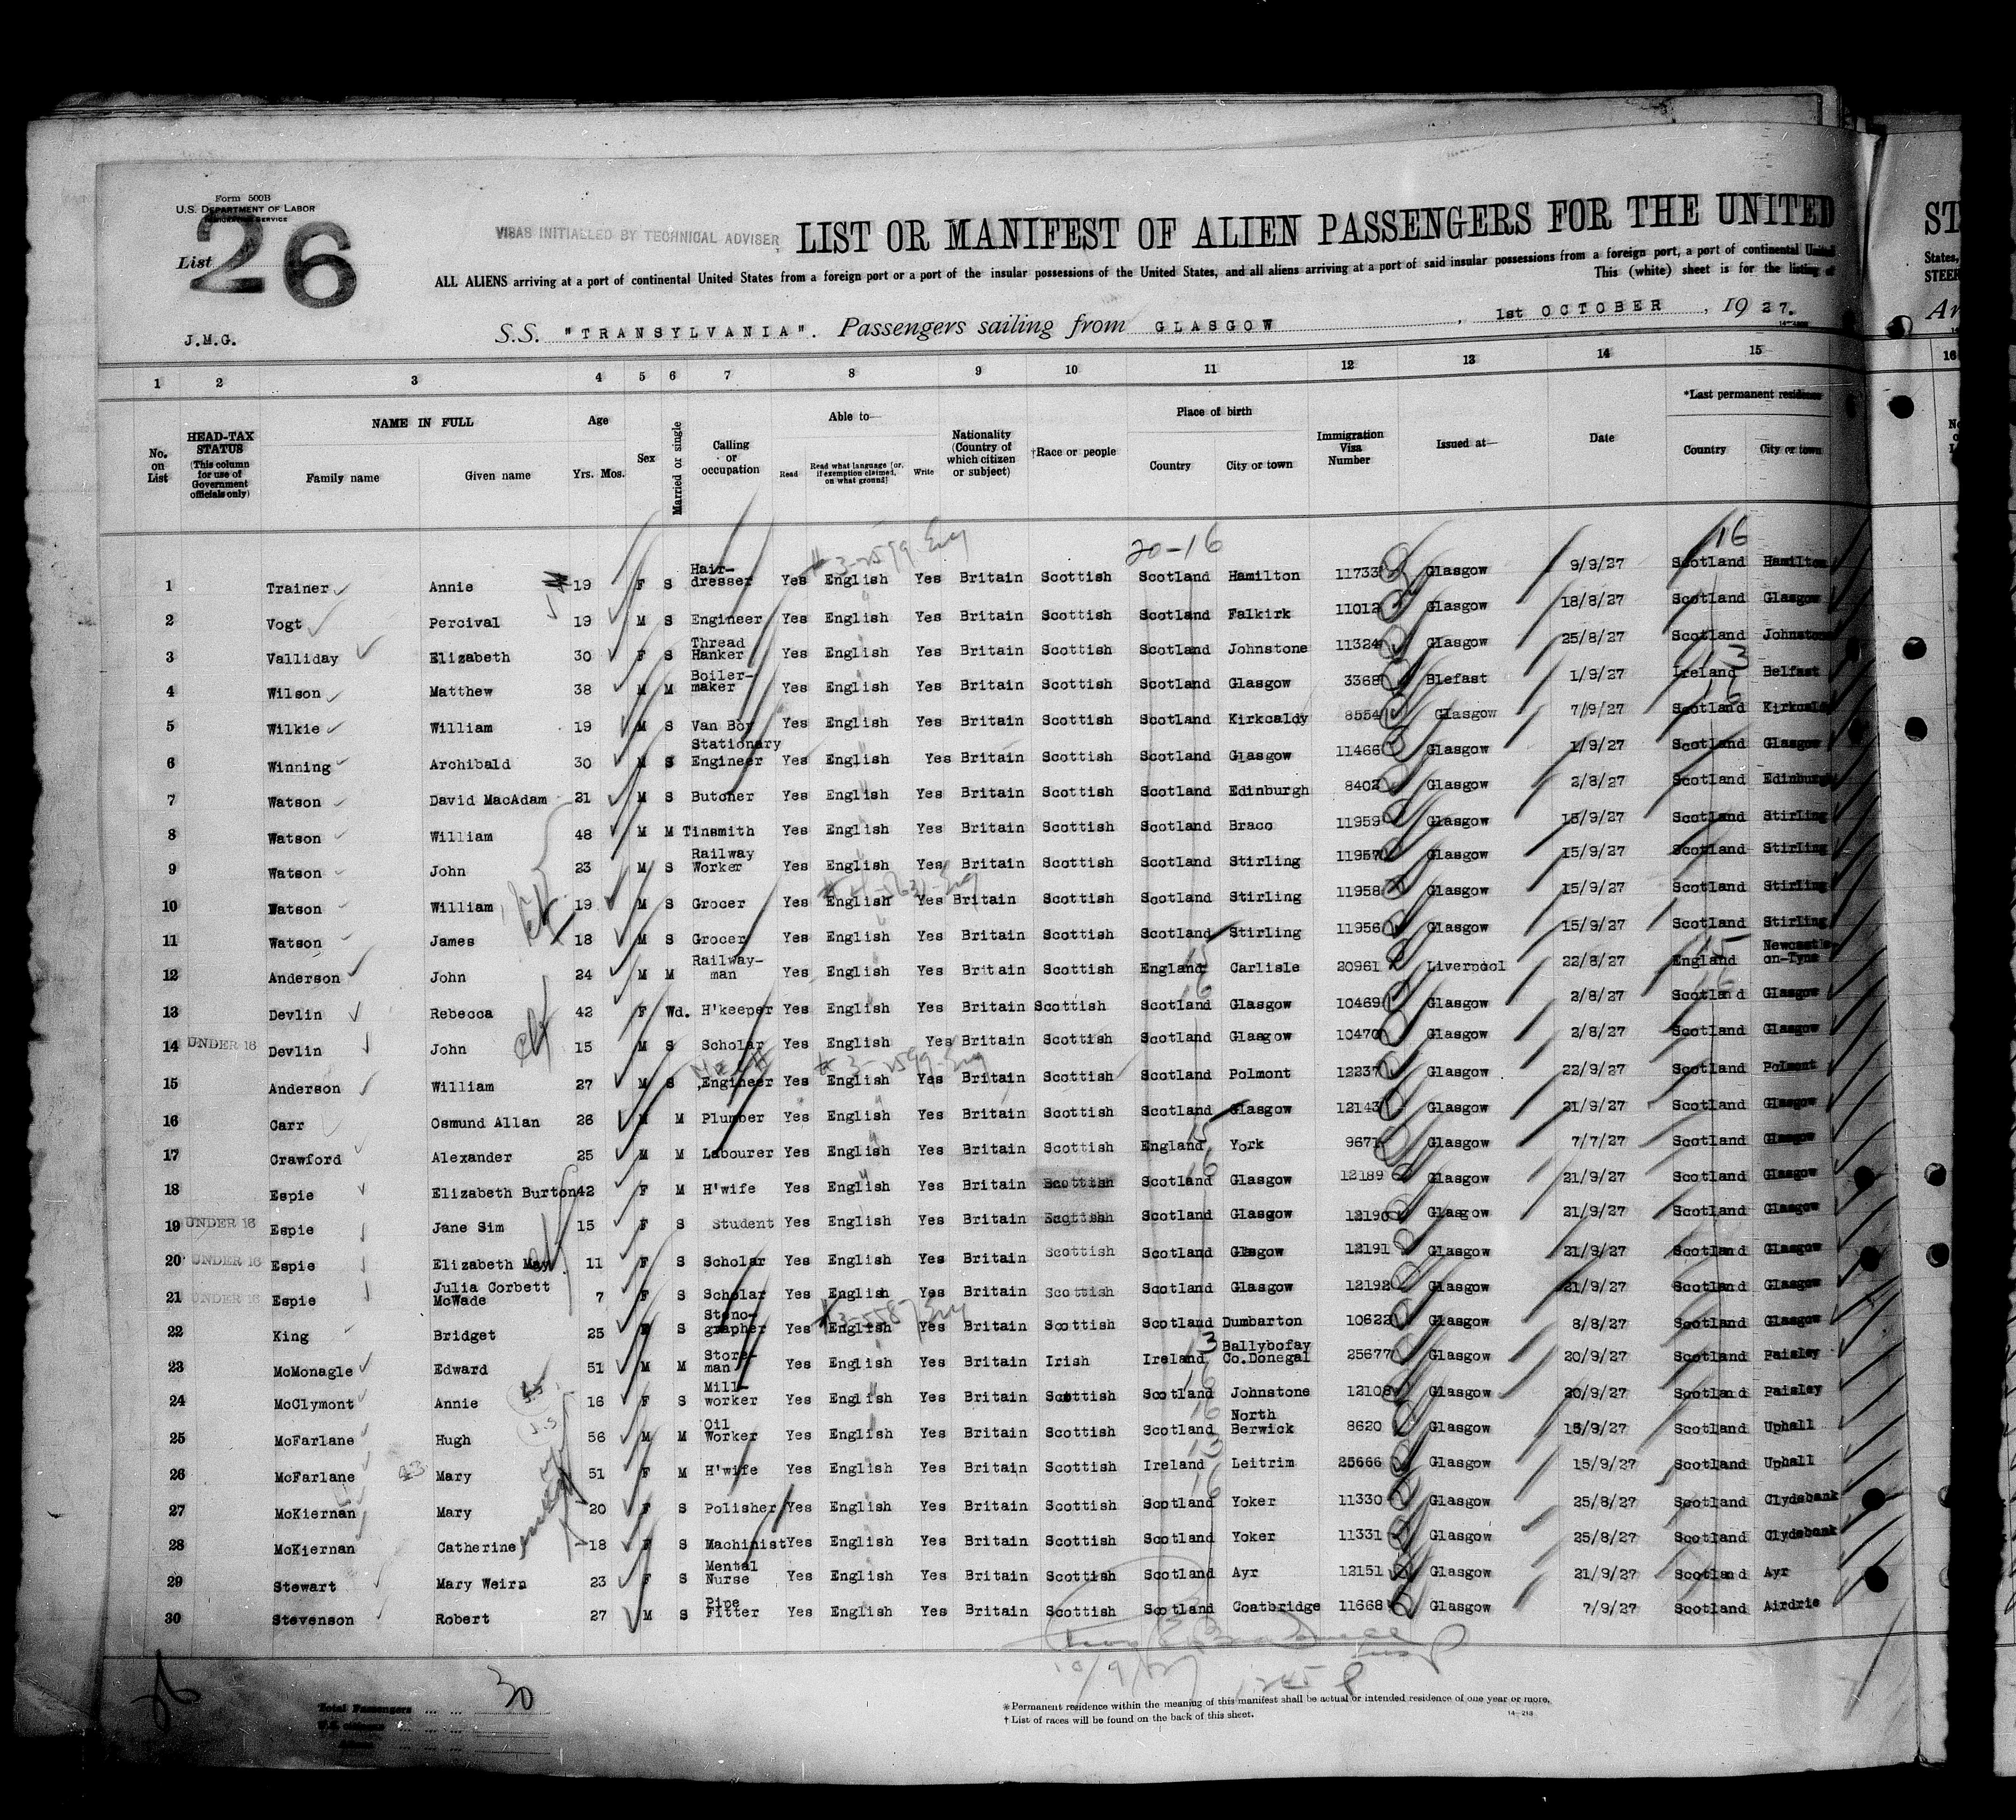 Form 500B
U.S. DEPARTMENT OF LABOR
IMMIGRATION SERVICE
List 26
VISAS INITIALLED BY TECHNICAL ADVISER
LIST OR MANIFEST OF ALIEN PASSENGERS FOR THE UNITED
ST
ALL ALIENS arriving at a port of continental United States from a foreign port or a port of the insular possessions of the United States, and all aliens arriving at a port of said insular possessions from a foreign port, a port of continental United
States,
This (white) sheet is for the listing of
STEER
J.M.G.
S.S. "TRANSYLVANIA". Passengers sailing from GLASGOW, 1st OCTOBER, 19 27.
Ar
1 2 3 4 5 6 7 8 9 10 11 12 13 14 15 16
No. on List
HEAD-TAX STATUS (This column for use of Government officials only)
NAME IN FULL
Family name Given name
Age
Yrs. Mos.
Sex
Married or single
Calling or occupation
Able to—
Read Read what language [or, if exemption claimed, on what ground] Write
Nationality (Country of which citizen or subject)
†Race or people
Place of birth
Country City or town
Immigration Visa Number
Issued at—
Date
*Last permanent residence
Country City or town
#3-2599 Eng 20-16 16
1 Trainer Annie 19 F S Hair-dresser Yes English Yes Britain Scottish Scotland Hamilton 11733 Glasgow 9/9/27 Scotland Hamilton
2 Vogt Percival 19 M S Engineer Yes English Yes Britain Scottish Scotland Falkirk 11012 Glasgow 18/8/27 Scotland Glasgow
3 Valliday Elizabeth 30 F S Thread Hanker Yes English Yes Britain Scottish Scotland Johnstone 11324 Glasgow 25/8/27 Scotland Johnstone
4 Wilson Matthew 38 M M Boiler-maker Yes English Yes Britain Scottish Scotland Glasgow 3368 Blefast 1/9/27 Ireland Belfast
5 Wilkie William 19 M S Van Boy Yes English Yes Britain Scottish Scotland Kirkcaldy 8554 Glasgow 7/9/27 Scotland Kirkcaldy
6 Winning Archibald 30 M S Stationary Engineer Yes English Yes Britain Scottish Scotland Glasgow 11466 Glasgow 1/9/27 Scotland Glasgow
7 Watson David MacAdam 21 M S Butcher Yes English Yes Britain Scottish Scotland Edinburgh 8402 Glasgow 2/8/27 Scotland Edinburgh
8 Watson William 48 M M Tinsmith Yes English Yes Britain Scottish Scotland Braco 11959 Glasgow 15/9/27 Scotland Stirling
9 Watson John 23 M S Railway Worker Yes English Yes Britain Scottish Scotland Stirling 11957 Glasgow 15/9/27 Scotland Stirling
10 Watson William 19 M S Grocer Yes English Yes Britain Scottish Scotland Stirling 11958 Glasgow 15/9/27 Scotland Stirling
11 Watson James 18 M S Grocer Yes English Yes Britain Scottish Scotland Stirling 11956 Glasgow 15/9/27 Scotland Stirling
12 Anderson John 24 M M Railway-man Yes English Yes Britain Scottish England Carlisle 20961 Liverpool 22/8/27 England Newcastle-on-Tyne
13 Devlin Rebecca 42 F Wd. H'keeper Yes English Yes Britain Scottish Scotland Glasgow 10469 Glasgow 2/8/27 Scotland Glasgow
14 UNDER 16 Devlin John 15 M S Scholar Yes English Yes Britain Scottish Scotland Glasgow 10470 Glasgow 2/8/27 Scotland Glasgow
#3-2599 Eng
15 Anderson William 27 M S Engineer Yes English Yes Britain Scottish Scotland Polmont 12237 Glasgow 22/9/27 Scotland Polmont
16 Carr Osmund Allan 26 M M Plumber Yes English Yes Britain Scottish Scotland Glasgow 12143 Glasgow 21/9/27 Scotland Glasgow
17 Crawford Alexander 25 M M Labourer Yes English Yes Britain Scottish England York 9671 Glasgow 7/7/27 Scotland Glasgow
18 Espie Elizabeth Burton 42 F M H'wife Yes English Yes Britain Scottish Scotland Glasgow 12189 Glasgow 21/9/27 Scotland Glasgow
19 UNDER 16 Espie Jane Sim 15 F S Student Yes English Yes Britain Scottish Scotland Glasgow 12190 Glasgow 21/9/27 Scotland Glasgow
20 UNDER 16 Espie Elizabeth May 11 F S Scholar Yes English Yes Britain Scottish Scotland Glasgow 12191 Glasgow 21/9/27 Scotland Glasgow
21 UNDER 16 Espie Julia Corbett McWade 7 F S Scholar Yes English Yes Britain Scottish Scotland Glasgow 12192 Glasgow 21/9/27 Scotland Glasgow
22 King Bridget 25 F S Steno-grapher Yes English Yes Britain Scottish Scotland Dumbarton 10622 Glasgow 8/8/27 Scotland Glasgow
23 McMonagle Edward 51 M M Store-man Yes English Yes Britain Irish Ireland Ballybofay Co.Donegal 25677 Glasgow 20/9/27 Scotland Paisley
24 McClymont Annie 16 F S Mill-worker Yes English Yes Britain Scottish Scotland Johnstone 12108 Glasgow 20/9/27 Scotland Paisley
25 McFarlane Hugh 56 M M Oil Worker Yes English Yes Britain Scottish Scotland North Berwick 8620 Glasgow 15/9/27 Scotland Uphall
26 McFarlane Mary 51 F M H'wife Yes English Yes Britain Scottish Ireland Leitrim 25666 Glasgow 15/9/27 Scotland Uphall
27 McKiernan Mary 20 F S Polisher Yes English Yes Britain Scottish Scotland Yoker 11330 Glasgow 25/8/27 Scotland Clydebank
28 McKiernan Catherine 18 F S Machinist Yes English Yes Britain Scottish Scotland Yoker 11331 Glasgow 25/8/27 Scotland Clydebank
29 Stewart Mary Weirn 23 F S Mental Nurse Yes English Yes Britain Scottish Scotland Ayr 12151 Glasgow 21/9/27 Scotland Ayr
30 Stevenson Robert 27 M S Pipe Fitter Yes English Yes Britain Scottish Scotland Coatbridge 11668 Glasgow 7/9/27 Scotland Airdrie
26
Total Passengers ... ... 30
U.S. citizens ... ... ...
Aliens ... ... ...
* Permanent residence within the meaning of this manifest shall be actual or intended residence of one year or more.
† List of races will be found on the back of this sheet.
14—213